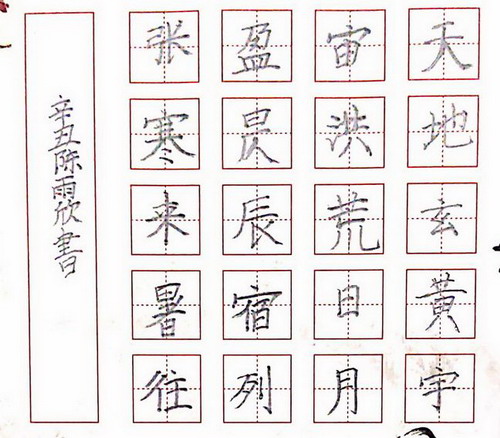 天地玄黃宇
宙洪荒日月
盈昃辰宿列
张寒来暑往
辛丑陈雨欣書